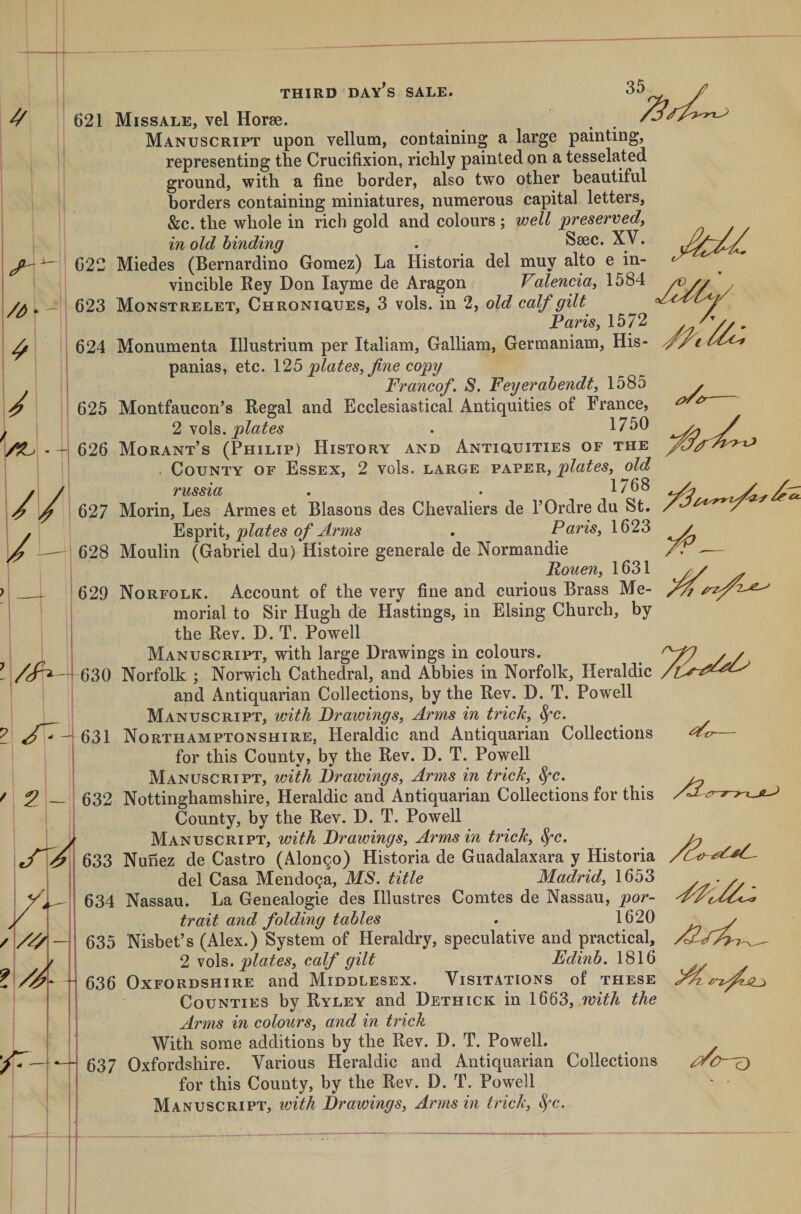 THIRD DAY'S SALE. 35
621 MISSALE, vel Horæ.
MANUSCRIPT upon vellum, containing a large painting,
representing the Crucifixion, richly painted on a tesselated
ground, with a fine border, also two other beautiful
borders containing miniatures, numerous capital letters,
&c. the whole in rich gold and colours; well preserved,
in old binding . Sæc. XV.
622 Miedes (Bernardino Gomez) La Historia del muy alto e in-
vincible Rey Don Iayme de Aragon Valencia, 1584
623 MONSTRELET, CHRONIQUES, 3 vols. in 2, old calf gilt
Paris, 1572
624 Monumenta Illustrium per Italiam, Galliam, Germaniam, His-
panias, etc. 125 plates, fine copy
Francof. S. Feyerabendt, 1585
625 Montfaucon's Regal and Ecclesiastical Antiquities of France,
2 vols. plates . 1750
626 MORANT'S (PHILIP) HISTORY AND ANTIQUITIES OF THE
COUNTY OF ESSEX, 2 vols. LARGE PAPER, plates, old
russia . . 1768
627 Morin, Les Armes et Blasons des Chevaliers de l'Ordre du St.
Esprit, plates of Arms . Paris, 1623
628 Moulin (Gabriel du) Histoire generale de Normandie
Rouen, 1631
629 NORFOLK. Account of the very fine and curious Brass Me-
morial to Sir Hugh de Hastings, in Elsing Church, by
the Rev. D. T. Powell
MANUSCRIPT, with large Drawings in colours.
630 Norfolk; Norwich Cathedral, and Abbies in Norfolk, Heraldic
and Antiquarian Collections, by the Rev. D. T. Powell
MANUSCRIPT, with Drawings, Arms in trick, &c.
631 NORTHAMPTONSHIRE, Heraldic and Antiquarian Collections
for this County, by the Rev. D. T. Powell
MANUSCRIPT, with Drawings, Arms in trick, &c.
632 Nottinghamshire, Heraldic and Antiquarian Collections for this
County, by the Rev. D. T. Powell
MANUSCRIPT, with Drawings, Arms in trick, &c.
633 Nuñez de Castro (Alonço) Historia de Guadalaxara y Historia
del Casa Mendoça, MS. title Madrid, 1653
634 Nassau. La Genealogie des Illustres Comtes de Nassau, por-
trait and folding tables . 1620
635 Nisbet's (Alex.) System of Heraldry, speculative and practical,
2 vols. plates, calf gilt Edinb. 1816
636 OXFORDSHIRE and MIDDLESEX. VISITATIONS of THESE
COUNTIES by RYLEY and DETHICK in 1663, with the
Arms in colours, and in trick
With some additions by the Rev. D. T. Powell.
637 Oxfordshire. Various Heraldic and Antiquarian Collections
for this County, by the Rev. D. T. Powell
MANUSCRIPT, with Drawings, Arms in trick, &c.